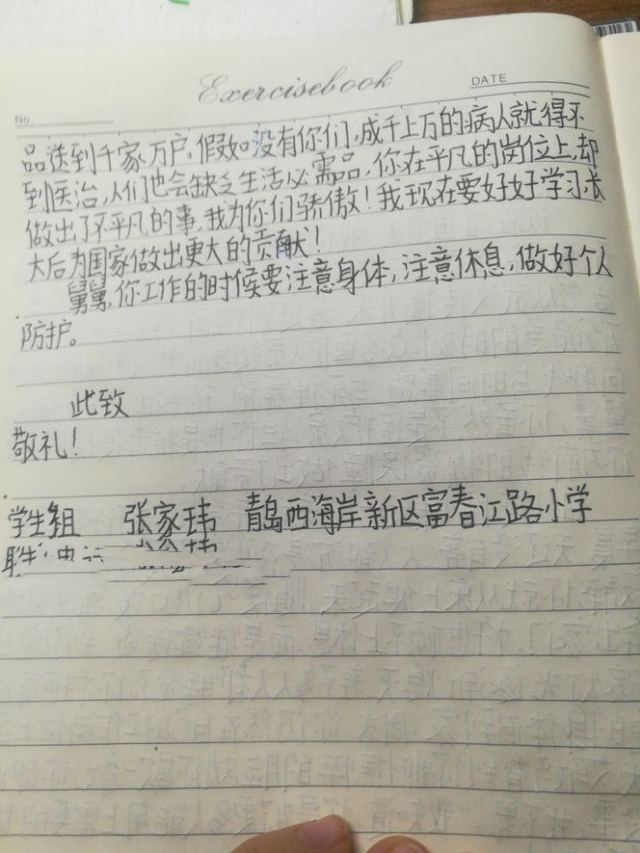 Exercisebook
No.
DATE
品送到千家万户。假如没有你们,成千上万的病人就得不
到医治,人们也会缺乏生活必需品,你在平凡的岗位上,却
做出了不平凡的事,我为你们骄傲!我现在要好好学习,长
大后为国家做出更大的贡献!
舅舅,你工作的时候要注意身体,注意休息,做好个人
防护。
此致
敬礼!
学生组 张家玮 青岛西海岸新区富春江路小学